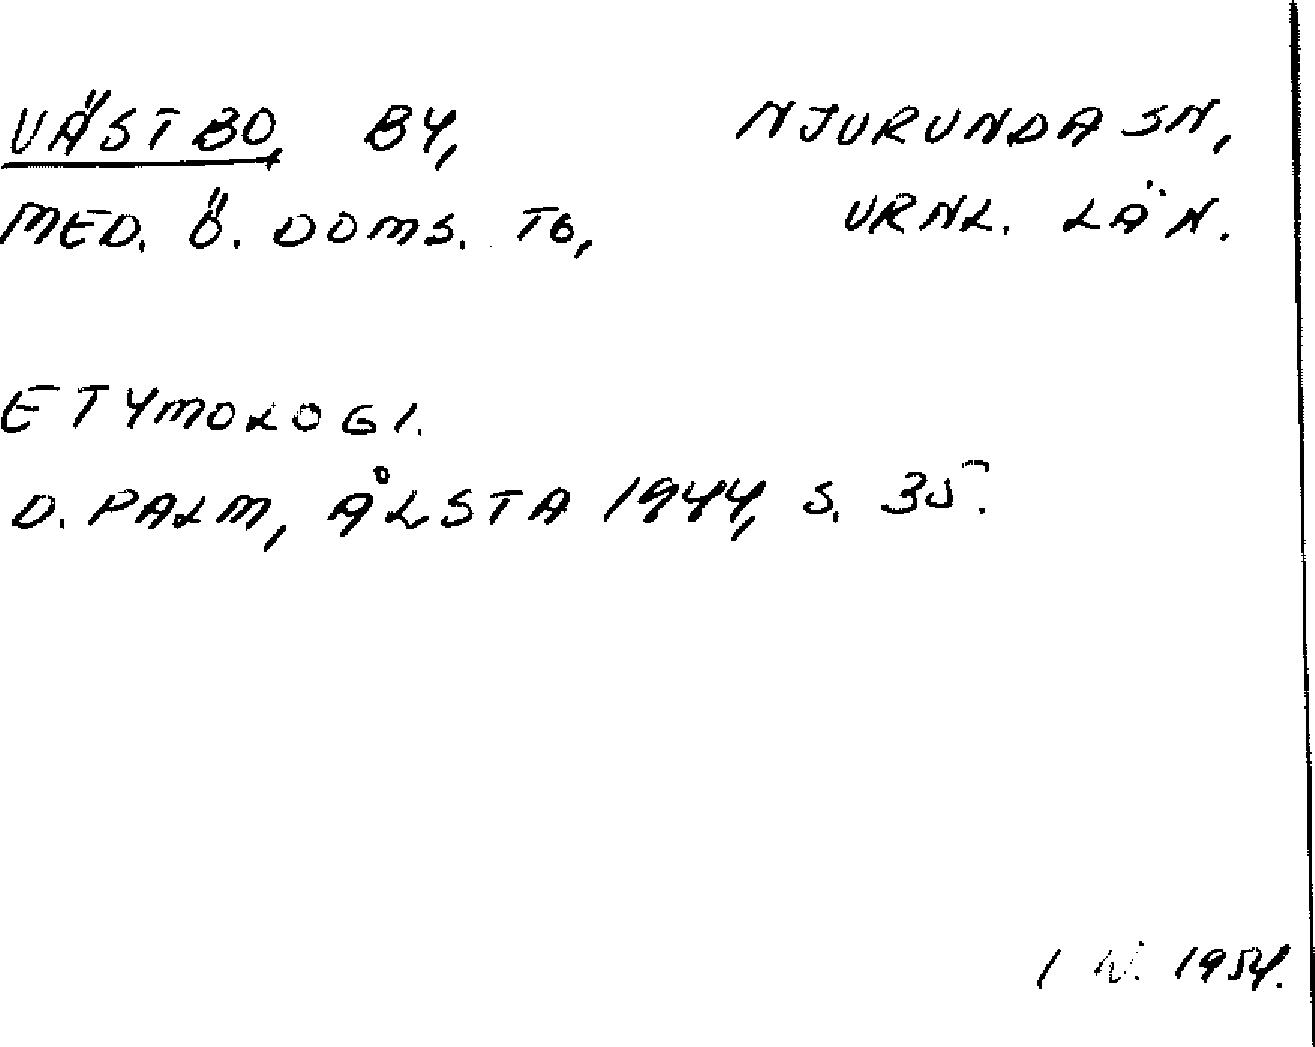 VÄSTBO, BY, NJURUNDA SN,
MED. Ö. DOMS. TG, VRNL. LÄN.
ETYMOLOGI.
D. PALM, ÅLSTA 1944, S. 35.
1 1954.